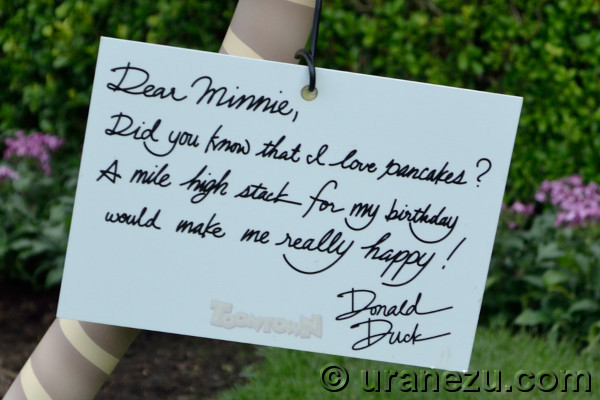 Dear Minnie,
Did you know that I love pancakes?
A mile high stack for my birthday
would make me really happy!
Donald
Duck
TOONTOWN
© uranezu.com